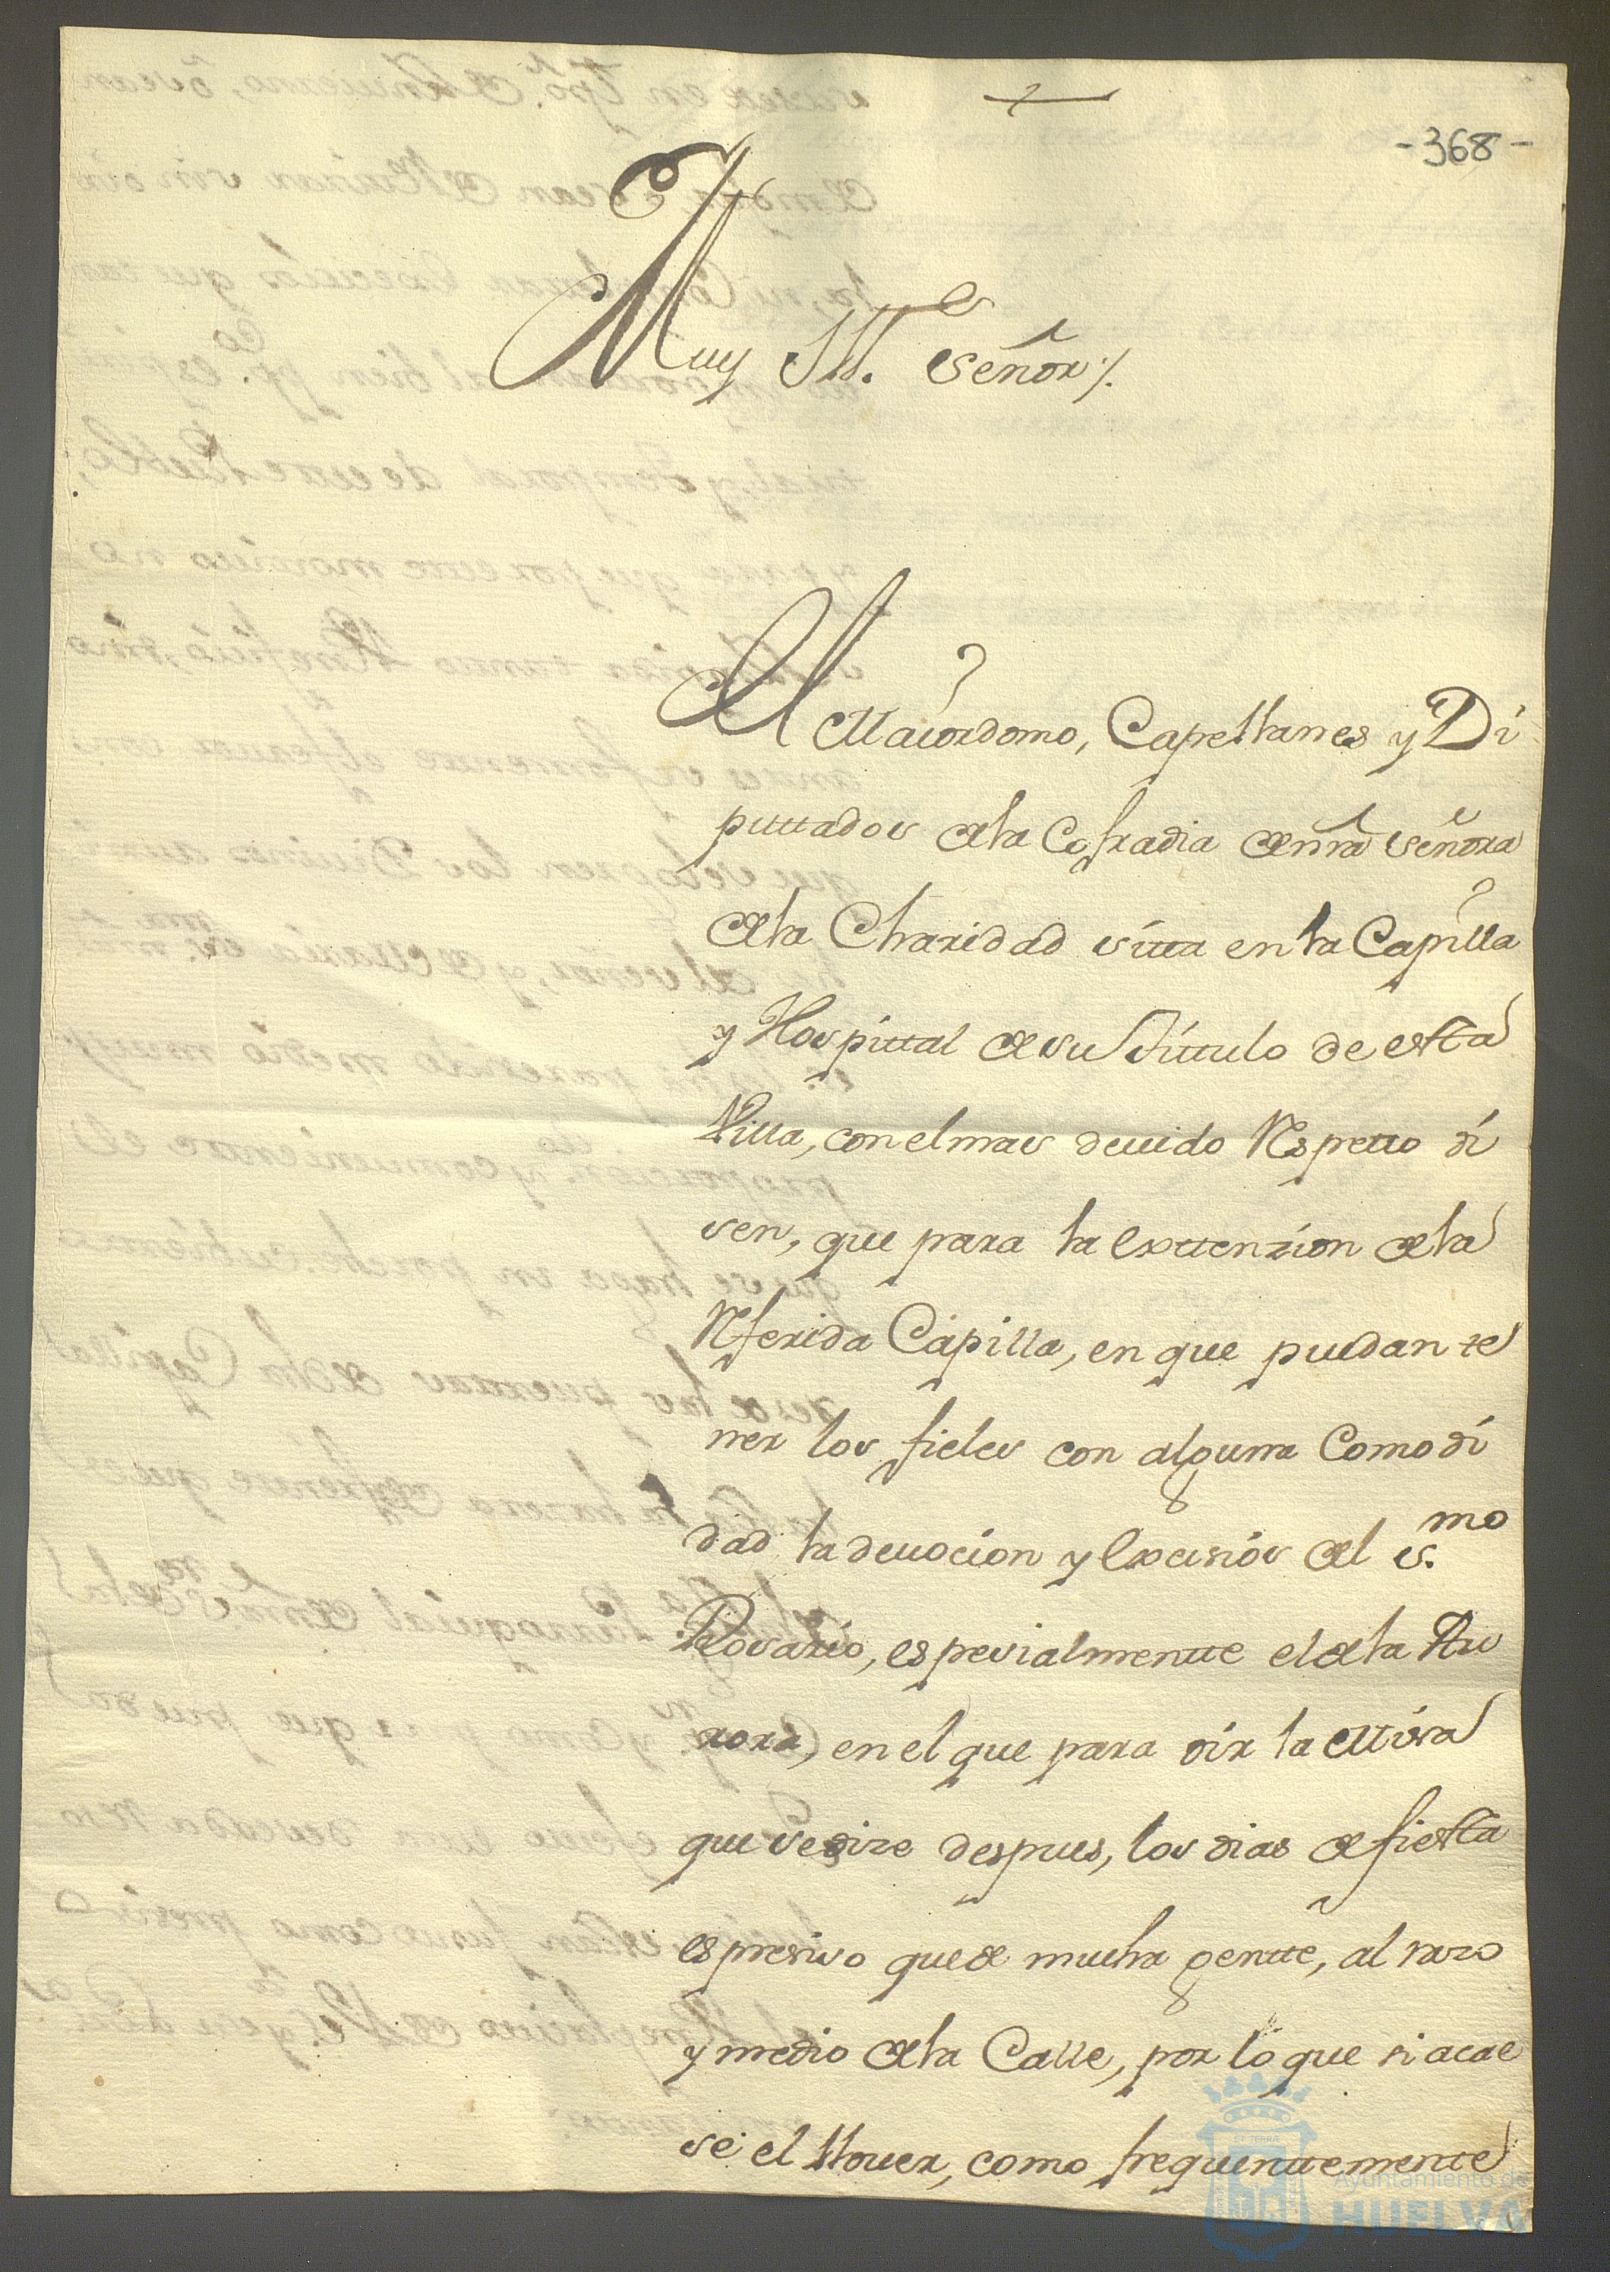 -368-
Muy Ill.e Señor /.
El Maiordomo, Capellanes y Di
puttados de la Cofradia de nrã Señora
de la Charidad sitta en la Capilla
y Hospittal de su títtulo de esttá
Villa, con el mas devido Respetto di
sen, que para la exttenzion de la
Referida Capilla, en que puedan te
ner los fieles con alguna Comodi
dad la devocion y Exersisios del S.mo
Rosario, espesialmentte el de la Au
rora, en el que para oir la Missa
que se dize despues, los dias de fiestta
es presiso quede mucha gentte, al razo
y medio de la Calle, por lo que si acae
se el llover, como frequenttementte
Ayuntamiento de
HUELVA